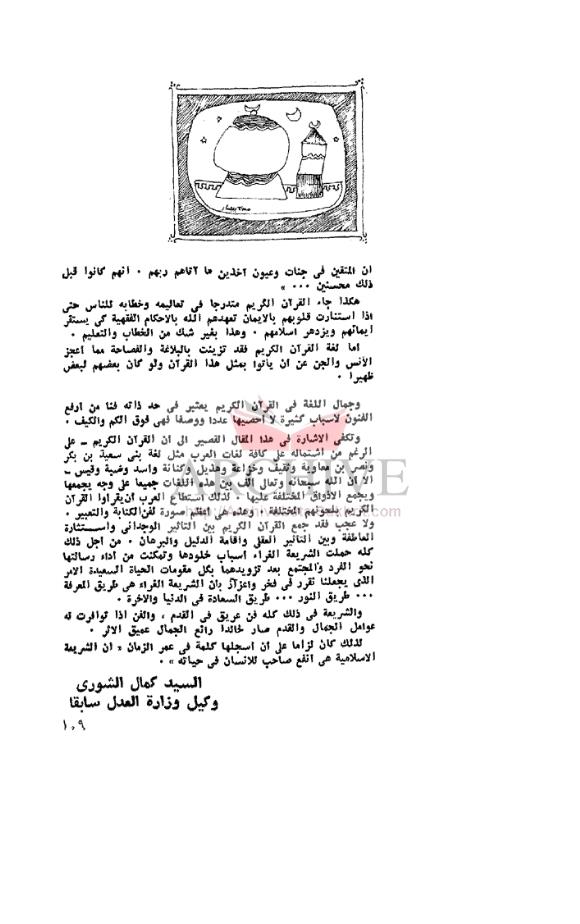 ان المتقين فى جنات وعيون آخذين ما آتاهم ربهم ٠ انهم كانوا قبل
ذلك محسنين ٠٠٠ »
هكذا جاء القرآن الكريم متدرجا فى تعاليمه وخطابه للناس حتى
اذا استنارت قلوبهم بالايمان تعهدهم الله بالاحكام الفقهية كى يستقر
ايمانهم ويزدهر اسلامهم ٠ وهذا بغير شك من الخطاب والتعليم ٠
اما لغة القرآن الكريم فقد تزينت بالبلاغة والفصاحة مما اعجز
الأنس والجن عن ان يأتوا بمثل هذا القرآن ولو كان بعضهم لبعض
ظهيرا ٠
وجمال اللغة فى القرآن الكريم يعتبر فى حد ذاته فنا من ارفع
الفنون لأسباب كثيرة لا احصيها عددا ووصفا فهى فوق الكم والكيف ٠
وتكفى الاشارة فى هذا المقال القصير الى ان القرآن الكريم ـ على
الرغم من اشتماله على كافة لغات العرب مثل لغة بنى سعيد بن بكر
ونصر بن معاوية وثقيف وخزاعة وهذيل وكنانة واسد وضبة وقيس ـ
الا ان الله سبحانه وتعالى الف بين هذه اللغات جميعا على وجه يجمعها
ويجمع الأذواق المختلفة عليها ٠ لذلك استطاع العرب أن يقراوا القرآن
الكريم بلحونهم المختلفة ٠ وهذه هى اعظم صورة لفن الكتابة والتعبير ٠
ولا عجب فقد جمع القرآن الكريم بين التأثير الوجدانى واستثارة
العاطفة وبين التأثير العقلى واقامة الدليل والبرهان ٠ من اجل ذلك
كله حملت الشريعة الغراء اسباب خلودها وتمكنت من أداء رسالتها
نحو الفرد والمجتمع بعد تزويدهما بكل مقومات الحياة السعيدة الأمر
الذى يجعلنا نقرر فى فخر واعزاز بان الشريعة الغراء هى طريق المعرفة
٠٠٠ طريق النور ٠٠٠ طريق السعادة فى الدنيا والآخرة ٠
والشريعة فى ذلك كله فن عريق فى القدم ، والفن اذا توافرت له
عوامل الجمال والقدم صار خالدا رائع الجمال عميق الأثر ٠
لذلك كان لزاما على ان اسجلها كلمة فى عمر الزمان « ان الشريعة
الاسلامية هى أنفع صاحب للانسان فى حياته » ٠
السيد كمال الشورى
وكيل وزارة العدل سابقا
١٠٩
ARCHIVE